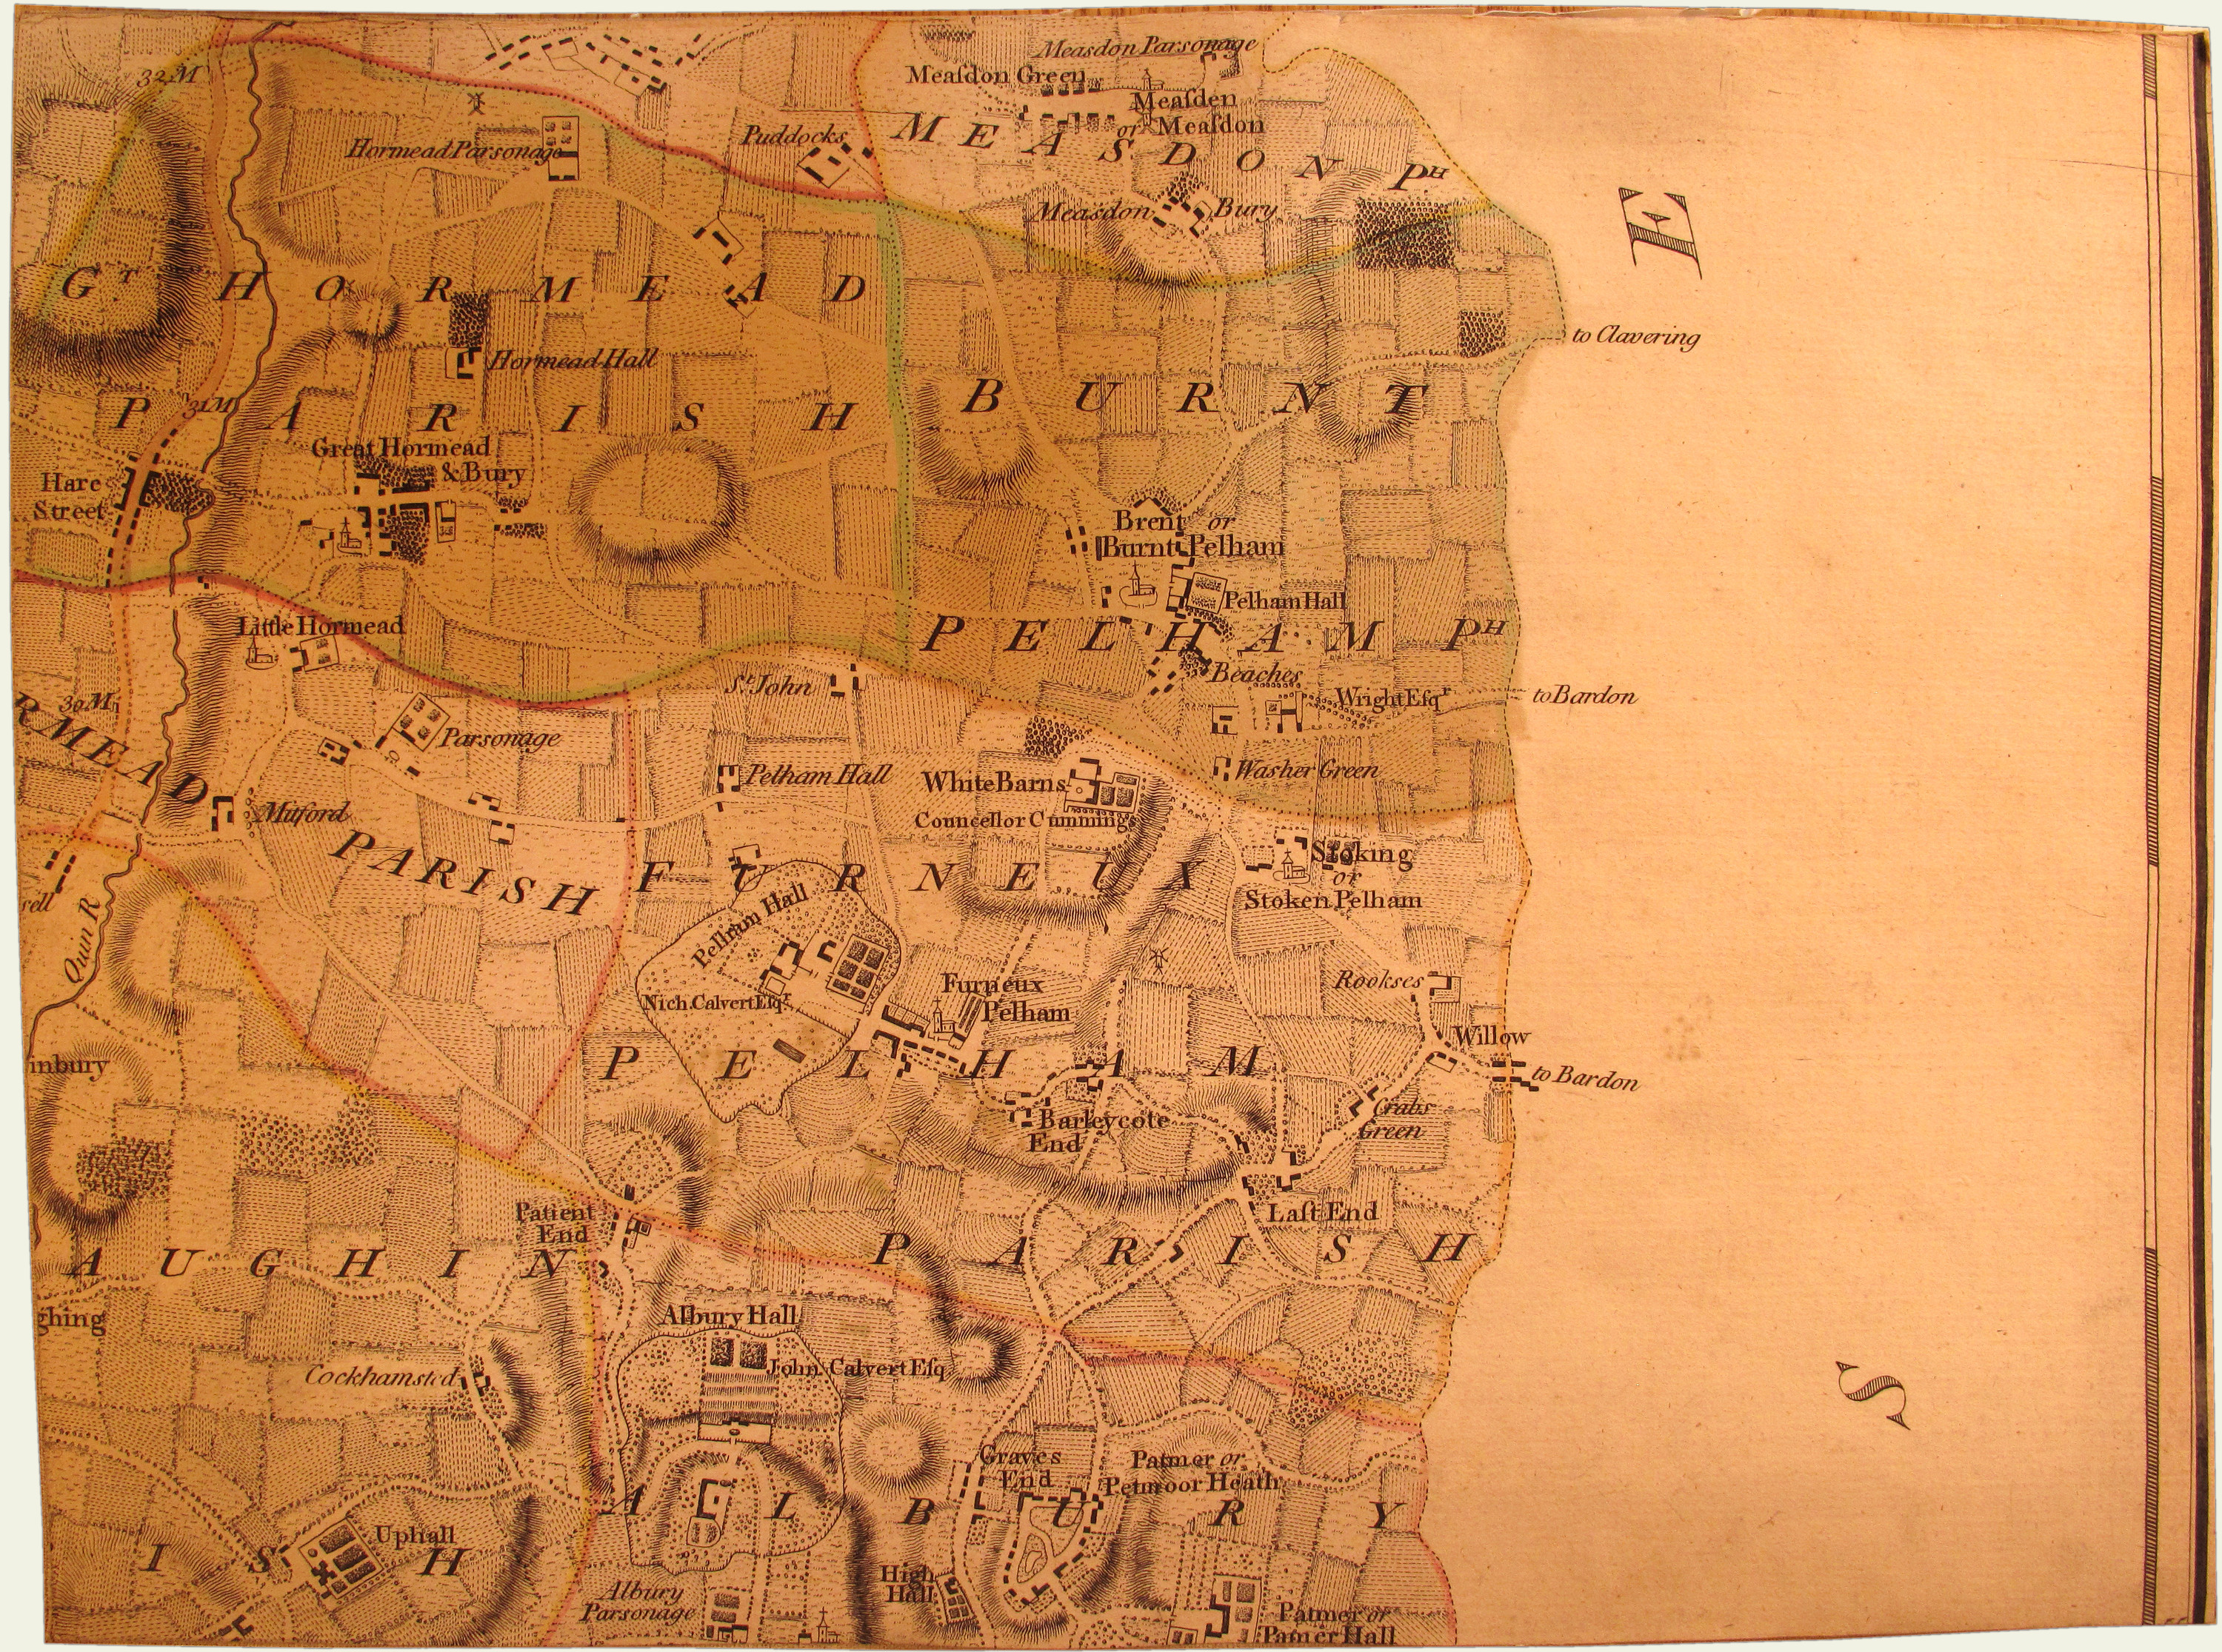 32 M
Measdon Parsonage
Meaſdon Green
Meaſden
or Meaſdon
MEASDON PH
Puddocks
Hormead Parsonage
Measdon Bury
E
GT HORMEAD
to Clavering
Hormead Hall
PARISH
31 M
BURNT
Great Hormead
& Bury
Hare
Street
Brent or
Burnt Pelham
Pelham Hall
PELHAM PH
Little Hormead
St John
Beaches
Wright Eſqr
to Bardon
30 M
RMEAD
Parsonage
Pelham Hall
White Barns
Councellor Cummings
Washer Green
Mutford
PARISH
FURNEUX
Stoking
or
Stoken Pelham
sell
Quin R
Pelham Hall
Nich. Calvert Eſqr
Furneux
Pelham
Rookses
Willow
to Bardon
inbury
PELHAM
Barleycote
End
Crabs
Green
Patient
End
Laſt End
AUGHIN
PARISH
ghing
Albury Hall
John Calvert Eſq
Cockhamsted
S
Graves
End
Patmer or
Petmoor Heath
ALBURY
Uphall
ISH
High
Hall
Albury
Parsonage
Patmer or
Pamer Hall